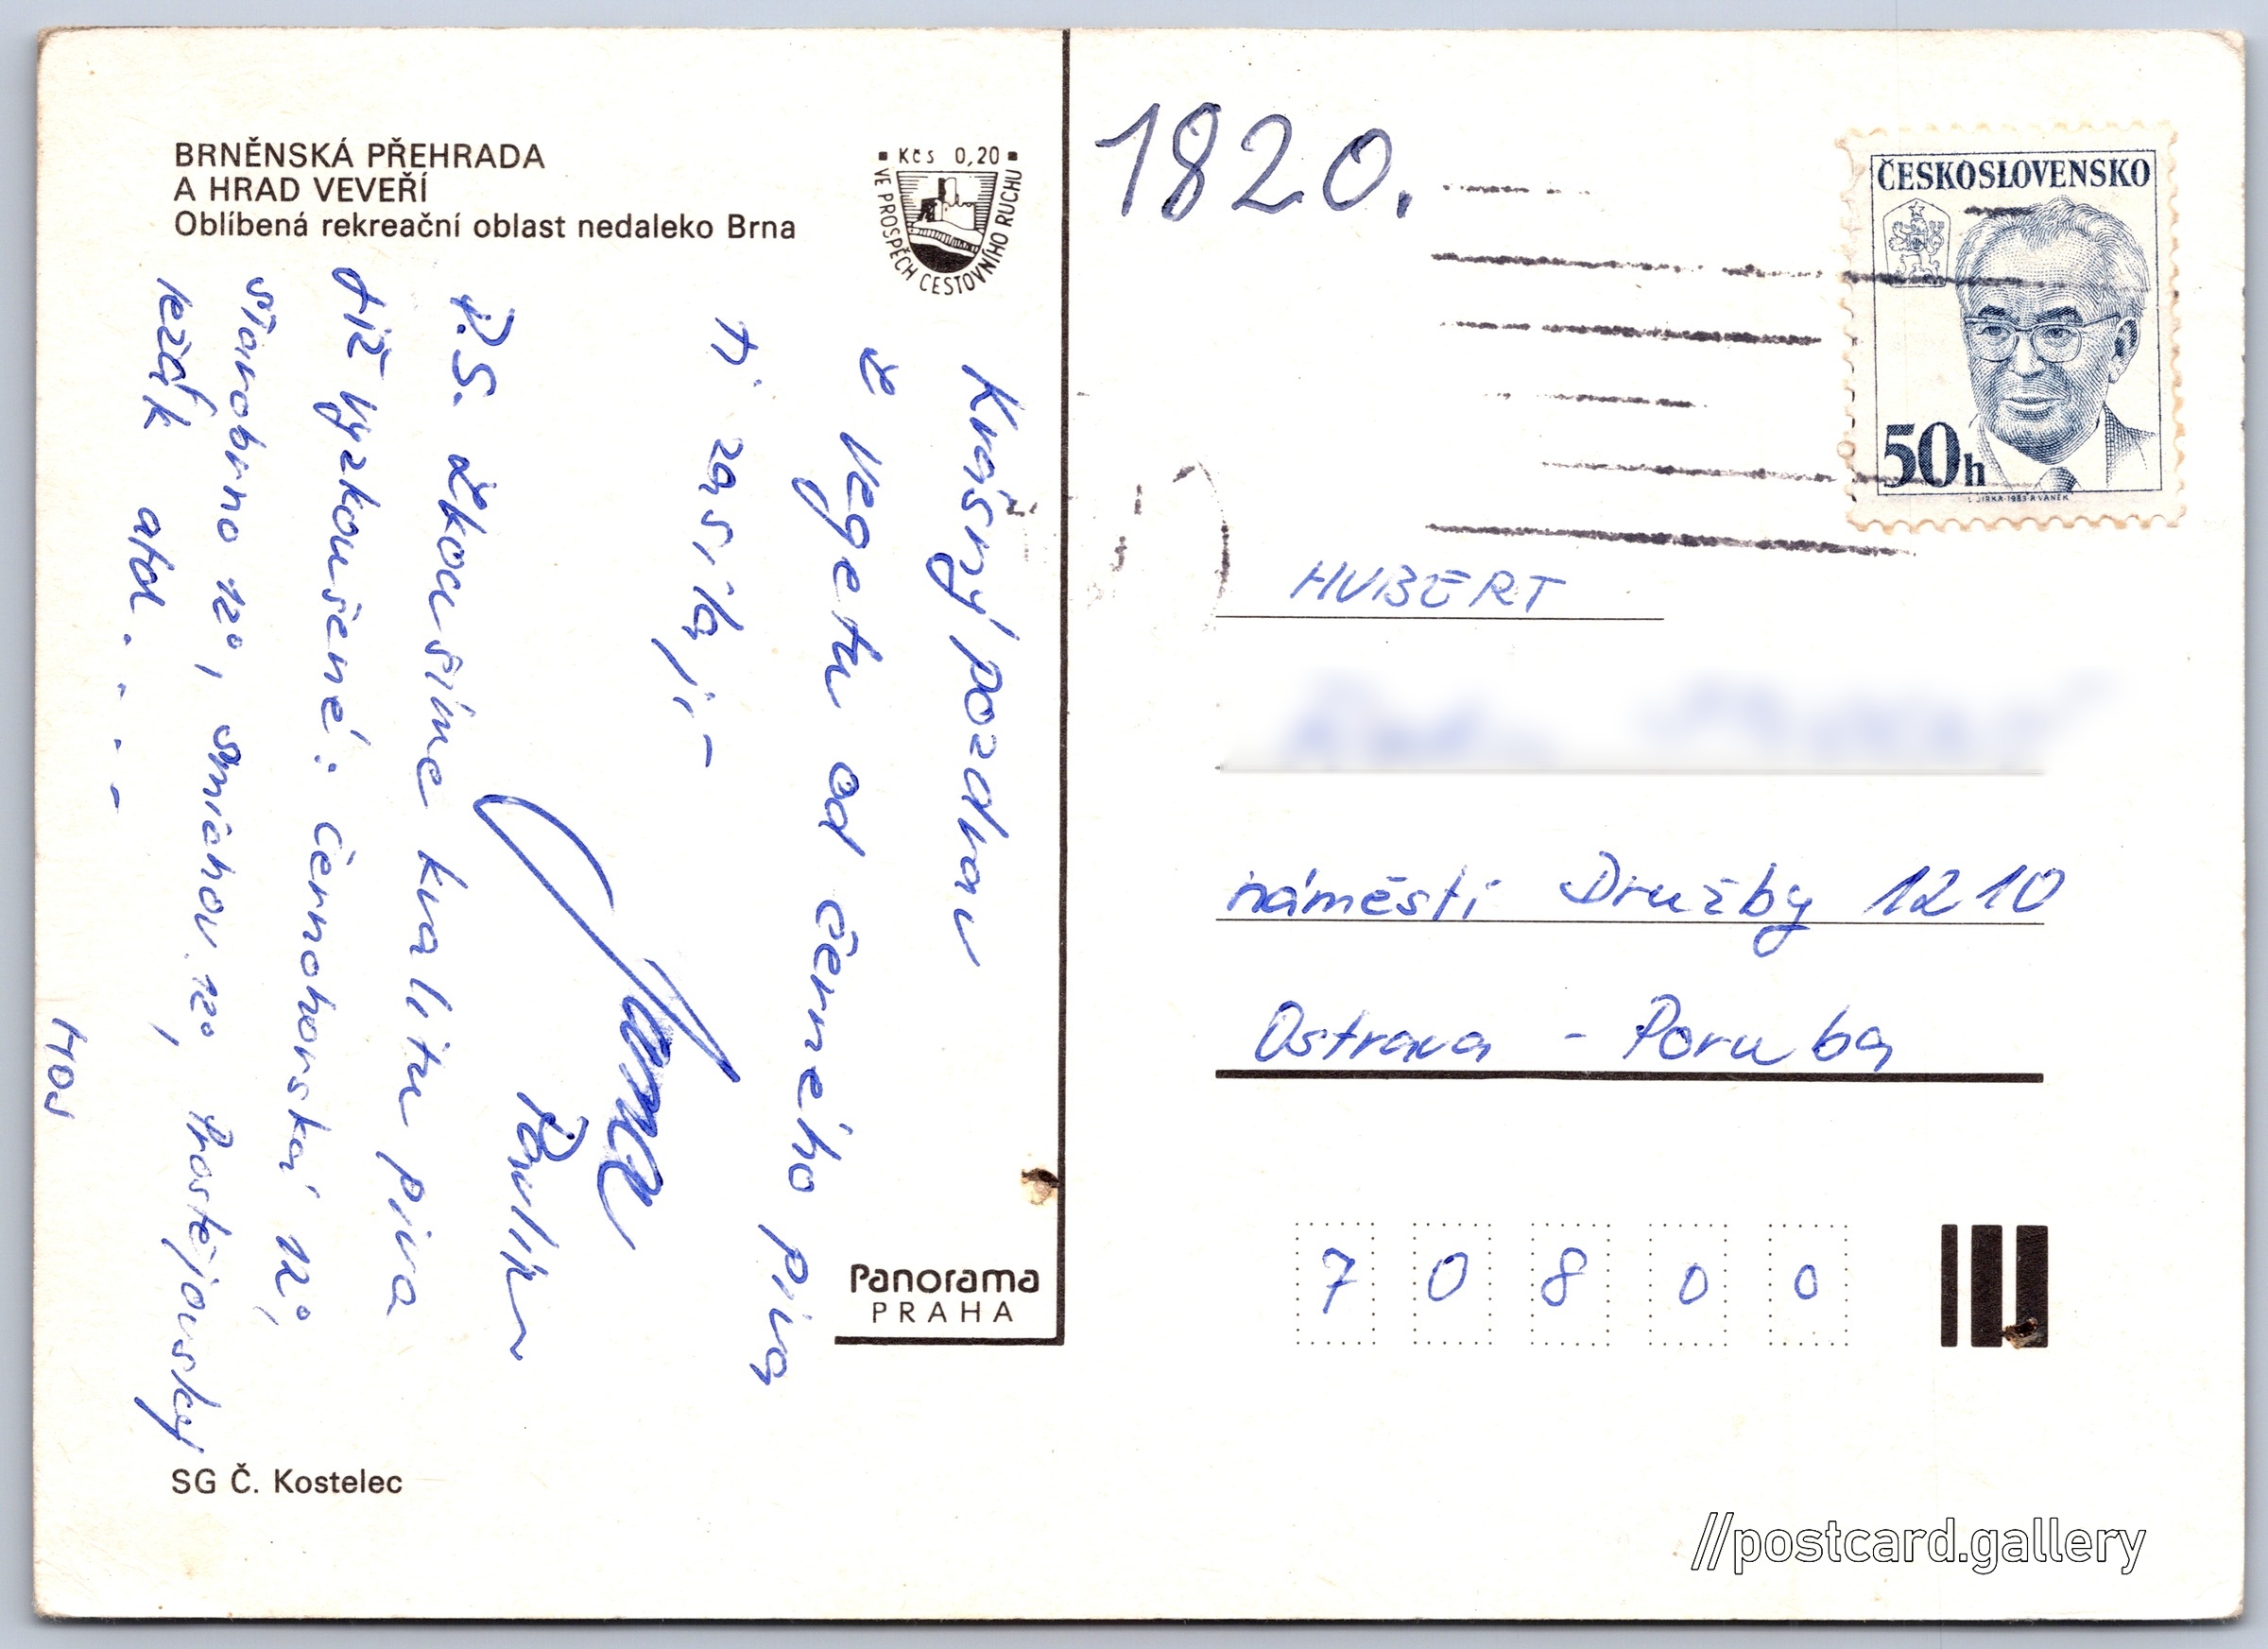 BRNĚNSKÁ PŘEHRADA
A HRAD VEVEŘÍ
Oblíbená rekreační oblast nedaleko Brna
Kčs 0,20
VE PROSPĚCH CESTOVNÍHO RUCHU
Krásný pozdrav
z vegetu od černého piva
ti zasílají -
Jama
Pavlík
P.S. Zkousíme kvalitu piva
již vyzkoušené: Černohorská 12°,
Starobrno 12°, Smíchov 12°, Prostějovský
ležák atd. . . -
Panorama
PRAHA
SG Č. Kostelec
1820.
ČESKOSLOVENSKO
50h
L. JIRKA-1983-R VANĚK
HUBERT
náměstí Družby 1210
Ostrava - Poruba
7 0 8 0 0
//postcard.gallery